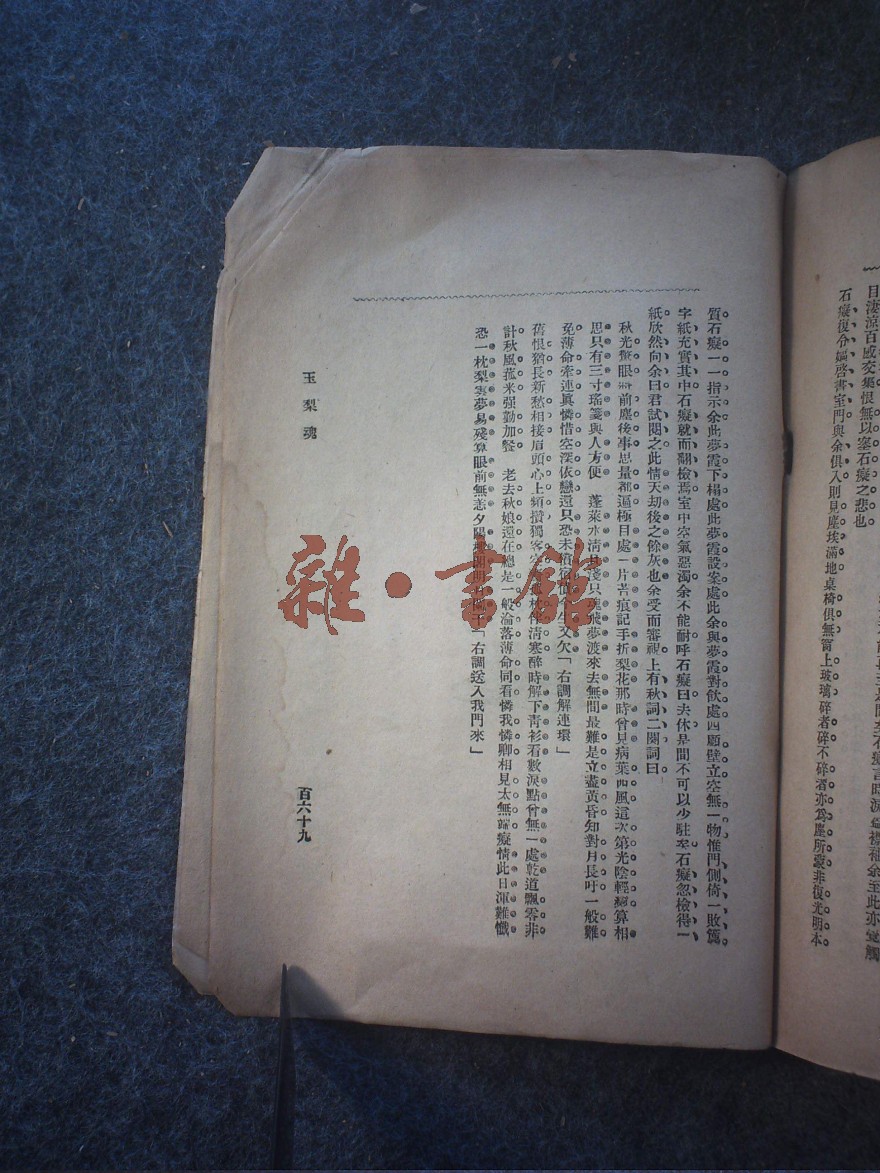 目淒涼百感交集恨無以塞石癡之悲也
石癡復令嫗啓書室門與余俱入則見塵埃滿地桌椅俱無窗上玻璃碎者碎不碎者亦爲塵所蒙非復光明本
質石癡一一指示余此夢霞下榻處此夢霞設案處此余與夢霞對飲處四顧壁立空無一物惟門側倚一敗簏
字紙充實其中石癡就而翻檢焉室中空氣惡濁余不能耐呼石癡曰去休是間不可以少駐矣石癡忽檢得一
紙欣然向余曰君試閱之此情天劫後之餘灰也余受而審視上有秋詞二闋詞曰
秋光驚眼將前塵後事思量都遍極目處一片苔痕記手折梨花那時曾見病葉西風這次第光陰輕變算相
思只有三寸瑤箋與人方便 蓬萊水清且淺只魂飛夢渡來去無間最難是立盡黃昏知對月長吁一般難
免薄命牽連眞憐惜空深依戀還只恐未償宿債今生又欠「右調解連環」
舊恨猶長新愁相接眉頭心上頻攢獨客空 枕伴清寒醉時解下青衫看數淚點曾無一處乾道飄零非
計秋風菰米强勤加餐 老去秋娘還在總是一般淪落薄命同看憐我憐卿相見太無端癡情此日渾難懺
恐一枕梨雲夢易殘算眼前無恙夕陽 「右調送入我門來」
玉梨魂
百六十九
雜·書館